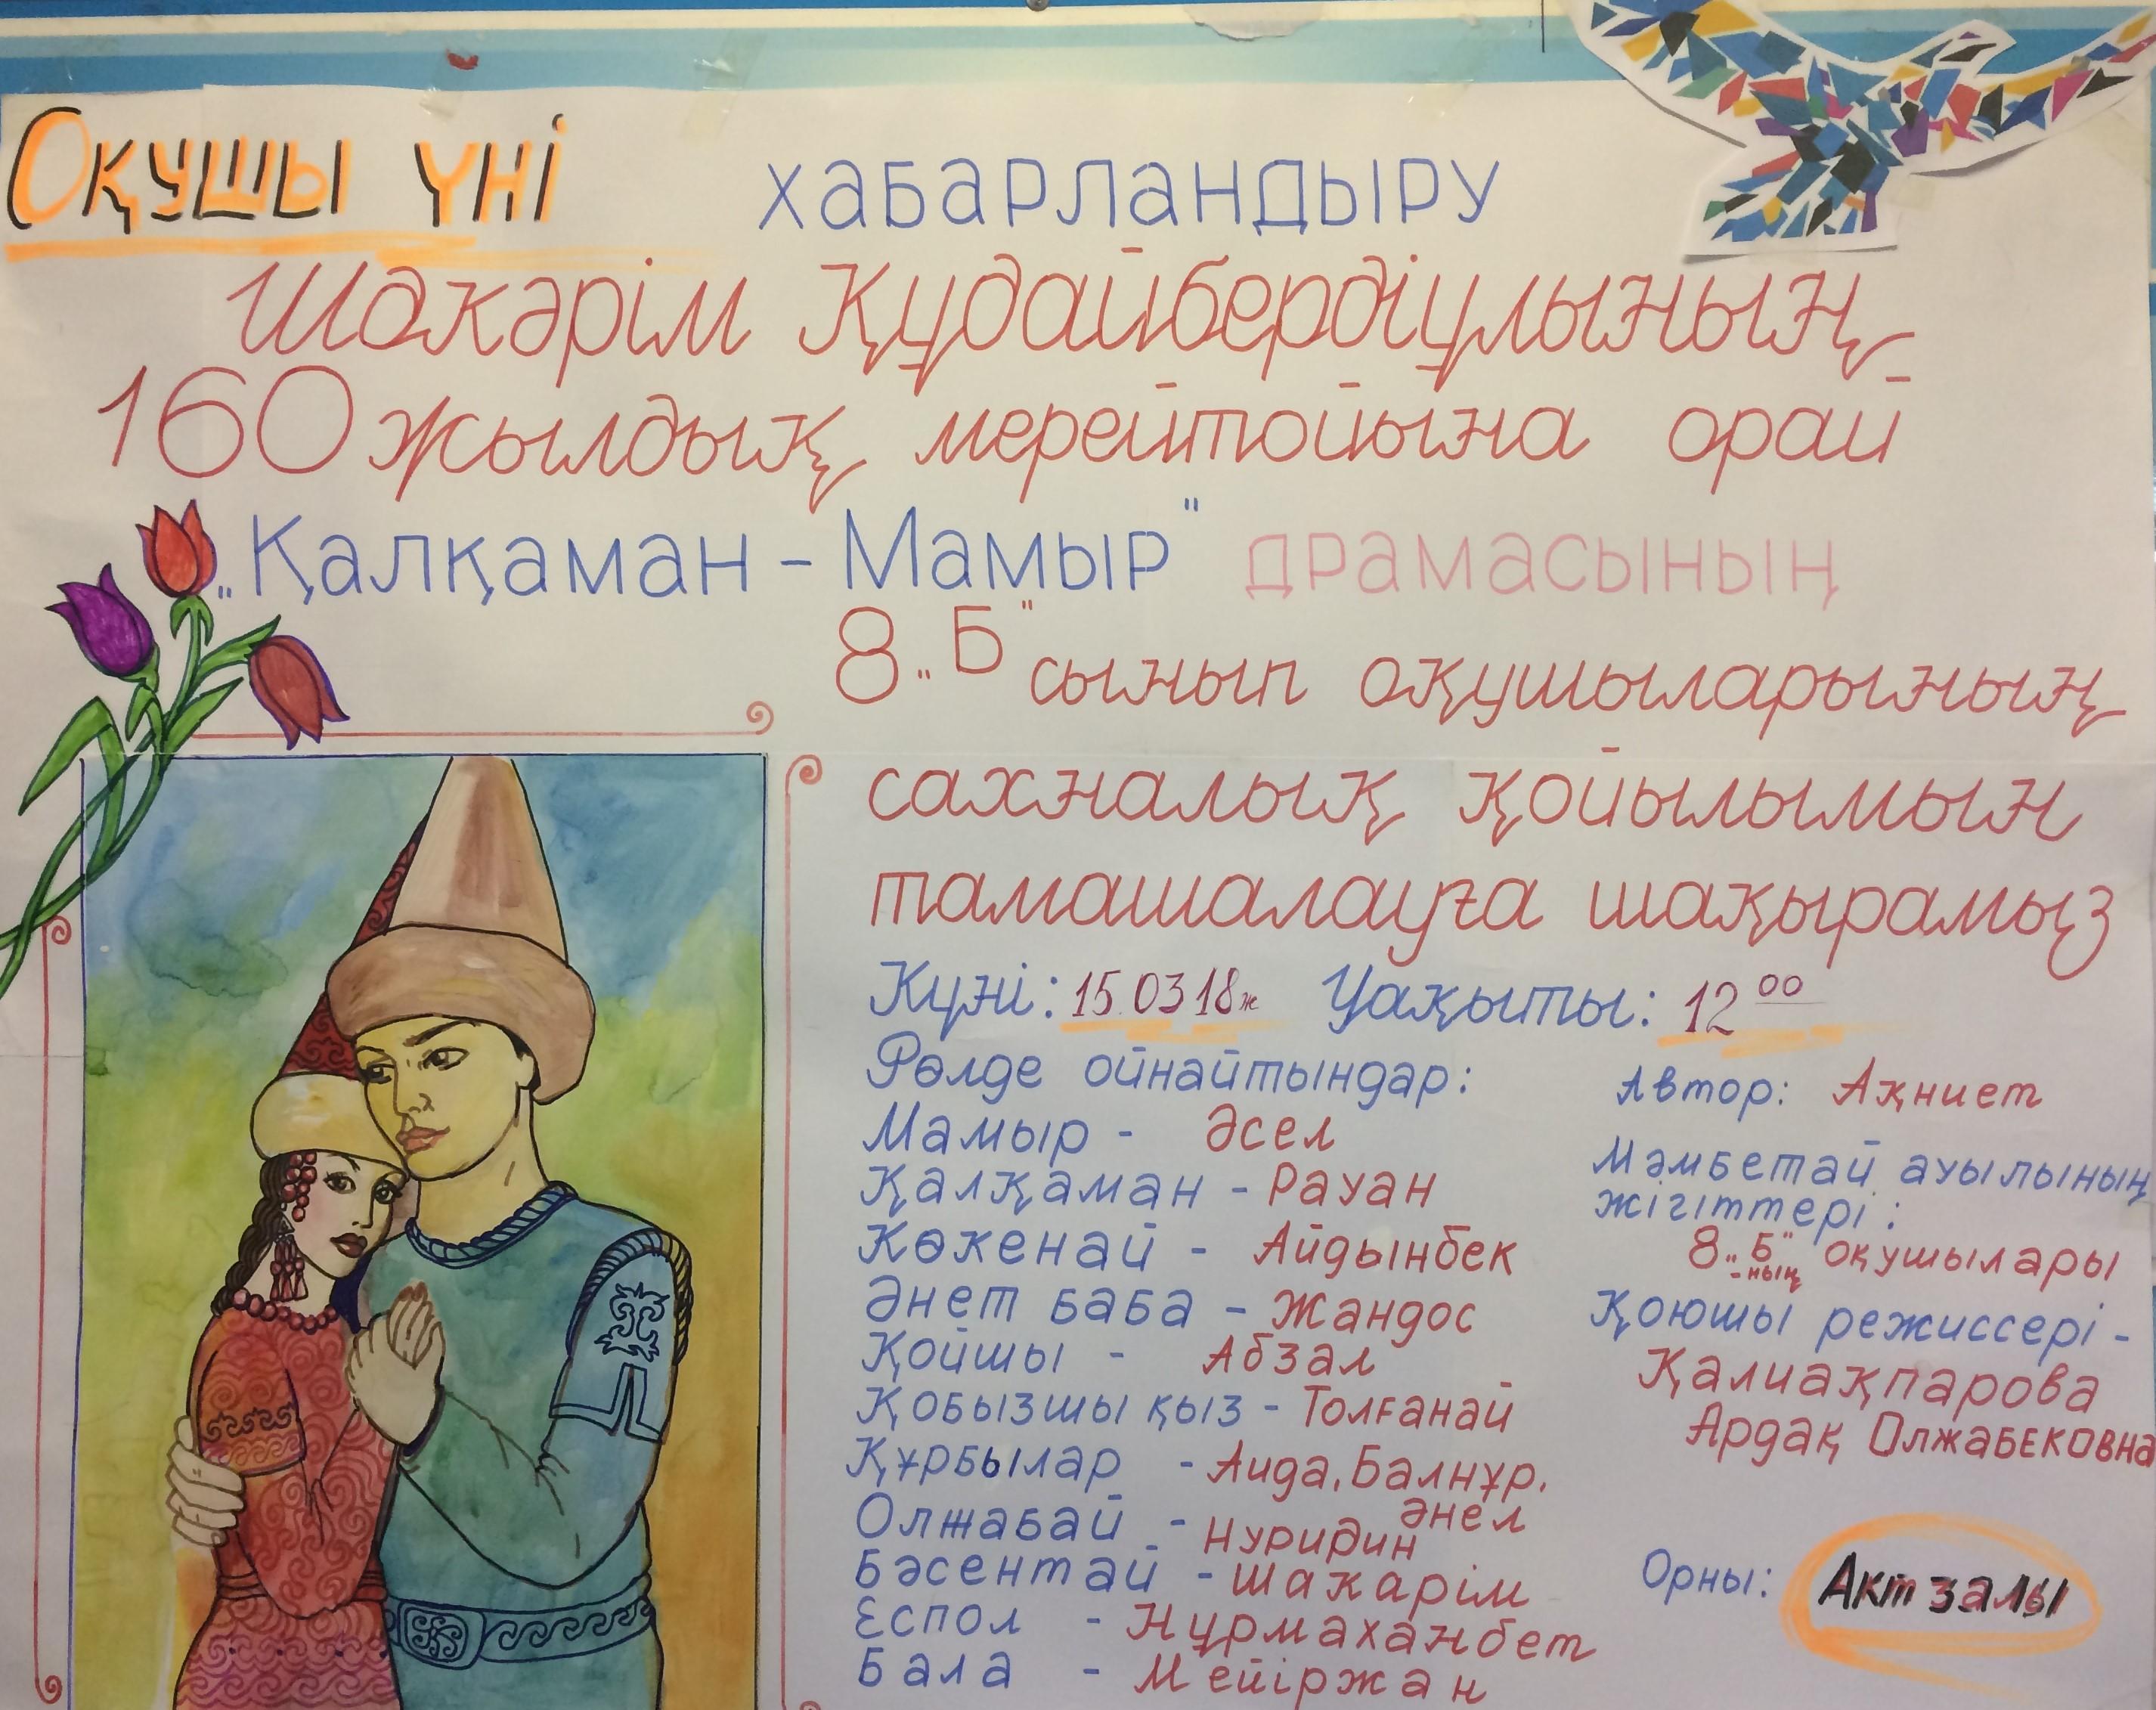 Оқушы үні
хабарландыру
Шәкәрім Құдайбердіұлының
160 жылдық мерейтойына орай
„Қалқаман - Мамыр" драмасының
8 „Б" сынып оқушыларының
сахналық қойылымын
тамашалауға шақырамыз
Күні: 15.03 18ж Уақыты: 12 00
Рөлде ойнайтындар:
Мамыр - Әсел
Қалқаман - Рауан
Көкенай - Айдынбек
Әнет баба - Жандос
Қойшы - Абзал
Қобызшы қыз - Толғанай
Құрбылар - Аида, Балнұр,
Әнел
Олжабай - Нуридин
Бәсентай - Шакарім
Еспол - Нұрмаханбет
Бала - Мейіржан
Автор: Ақниет
Мәмбетай ауылының
жігіттері:
8 „Б" -ның оқушылары
Қоюшы режиссері -
Қалиақпарова
Ардақ Олжабековна
Орны: Акт залы